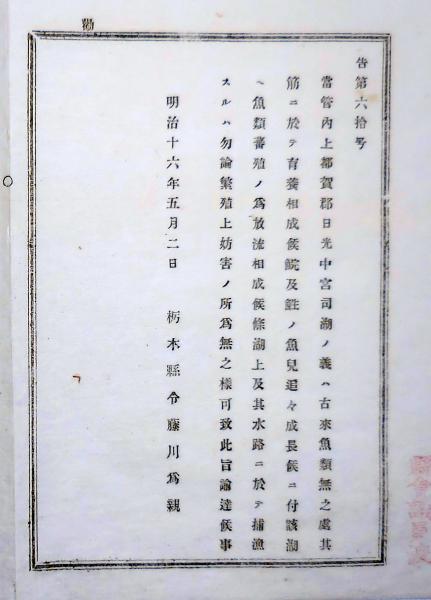 勸
告第六拾号
當管內上都賀郡日光中宮司湖ノ義ハ古來魚類無之處其
筋ニ於テ育養相成候鯇及鮏ノ魚兒追々成長候ニ付該湖
ヘ魚類蕃殖ノ爲放流相成候條湖上及其水路ニ於テ捕漁
スルハ勿論繁殖上妨害ノ所爲無之樣可致此旨諭達候事
明治十六年五月二日 栃木縣令藤川爲親